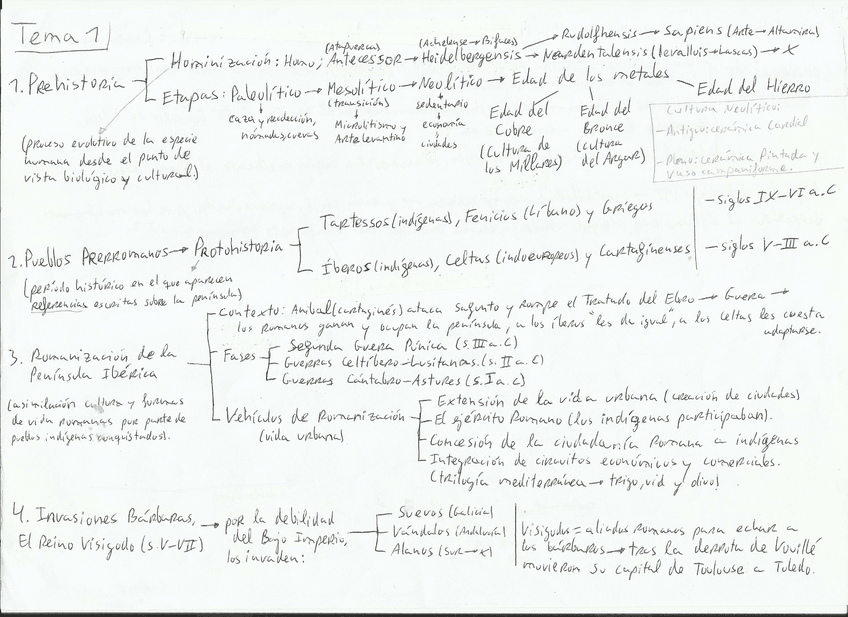 Tema 1
1. Prehistoria
Hominización: Homo; Antecessor → Heidelbergensis → Neardentalensis (levalluis → Lascas) → X
(Atapuerca)
(Achelense → Bifaces)
Rudolfhensis → Sapiens (Arte → Altamira)
Etapas: Paleolítico → Mesolítico → Neolítico → Edad de los metales
(transición)
caza y recolección,
nómadas, cuevas
Microlitismo y
Arte levantino
sedentario
economía
ciudades
Edad del
Cobre
(Cultura de
los Millares)
Edad del
Bronce
(cultura
del Argar)
Edad del Hierro
Cultura Neolítico:
- Antiguo: cerámica Cardial
- Pleno: cerámica Pintada y
vaso campaniforme.
(proceso evolutivo de la especie
humana desde el punto de
vista biológico y cultural)
2. Pueblos Prerromanos → Protohistoria
Tartessos (indígenas), Fenicios (Líbano) y Griegos
- siglos IX-VI a.C
Íberos (indígenas), Celtas (indoeuropeos) y Cartaginenses
- siglo V-III a.C
(período histórico en el que aparecen
referencias escritas sobre la península)
3. Romanización de la
Península Ibérica
(asimilación cultura y formas
de vida romanas por parte de
pueblos indígenas conquistados).
Contexto: Anibal (cartaginés) ataca Sagunto y rompe el Tratado del Ebro → Guerra →
los romanos ganan y ocupan la península, a los íberos "les da igual", a los celtas les cuesta
adaptarse.
Fases
Segunda Guerra Púnica (s. III a.C)
Guerras Celtíbero-Lusitanas. (s. II a.C)
Guerras Cántabro-Astures (s. I a.C)
Vehículos de Romanización
(vida urbana)
Extensión de la vida urbana (creación de ciudades)
El ejército Romano (los indígenas participaban).
Concesión de la ciudadanía Romana a indígenas
Integración de circuitos económicos y comerciales.
(trilogía mediterránea → trigo, vid y olivo)
4. Invasiones Bárbaras,
El Reino Visigodo (s. V-VII)
por la debilidad
del Bajo Imperio,
los invaden:
Suevos (Galicia)
Vándalos (Andalucía)
Alanos (Sur → X)
Visigodos = aliados romanos para echar a
los bárbaros → tras la derrota de Vouillé
movieron su capital de Toulouse a Toledo.